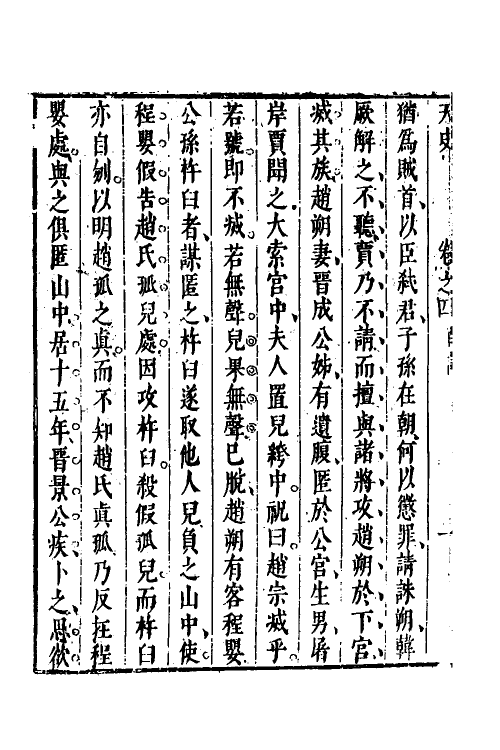 天史　卷之四
猶為賊首、以臣弒君、子孫在朝、何以懲罪、請誅朔、韓
厥解之不聽、賈乃不請而擅與諸將攻趙朔於下宫
滅其族、趙朔妻、晉成公姊、有遺腹、匿於公宫、生男、屠
岸賈聞之大索宫中、夫人置兒絝中、祝曰。趙宗滅乎。
若號。即不滅。若無聲。兒果無聲。已脫、趙朔有客程嬰
公孫杵臼者、謀匿之、杵臼遂取他人兒負之山中、使
程嬰假告趙氏孤兒處。因攻杵臼。殺假孤兒。而杵臼
亦自刎。以明趙孤之真。而不知趙氏真孤乃反在程
嬰處。與之俱匿山中。居十五年。晉景公疾、卜之、愚欲